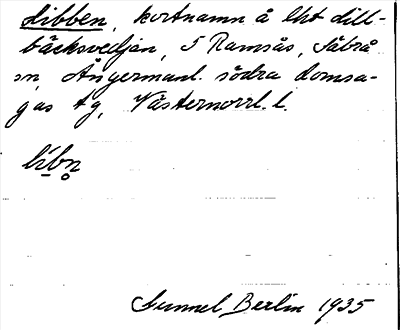 Libben, kortnamn å lht Lill-
bäcksvedjan, 5 Ramsås, Säbrå
sn, Ångermanl. södra domsa-
gas tg, Västernorrl. l.
libn̥
Gunnel Berlin 1935